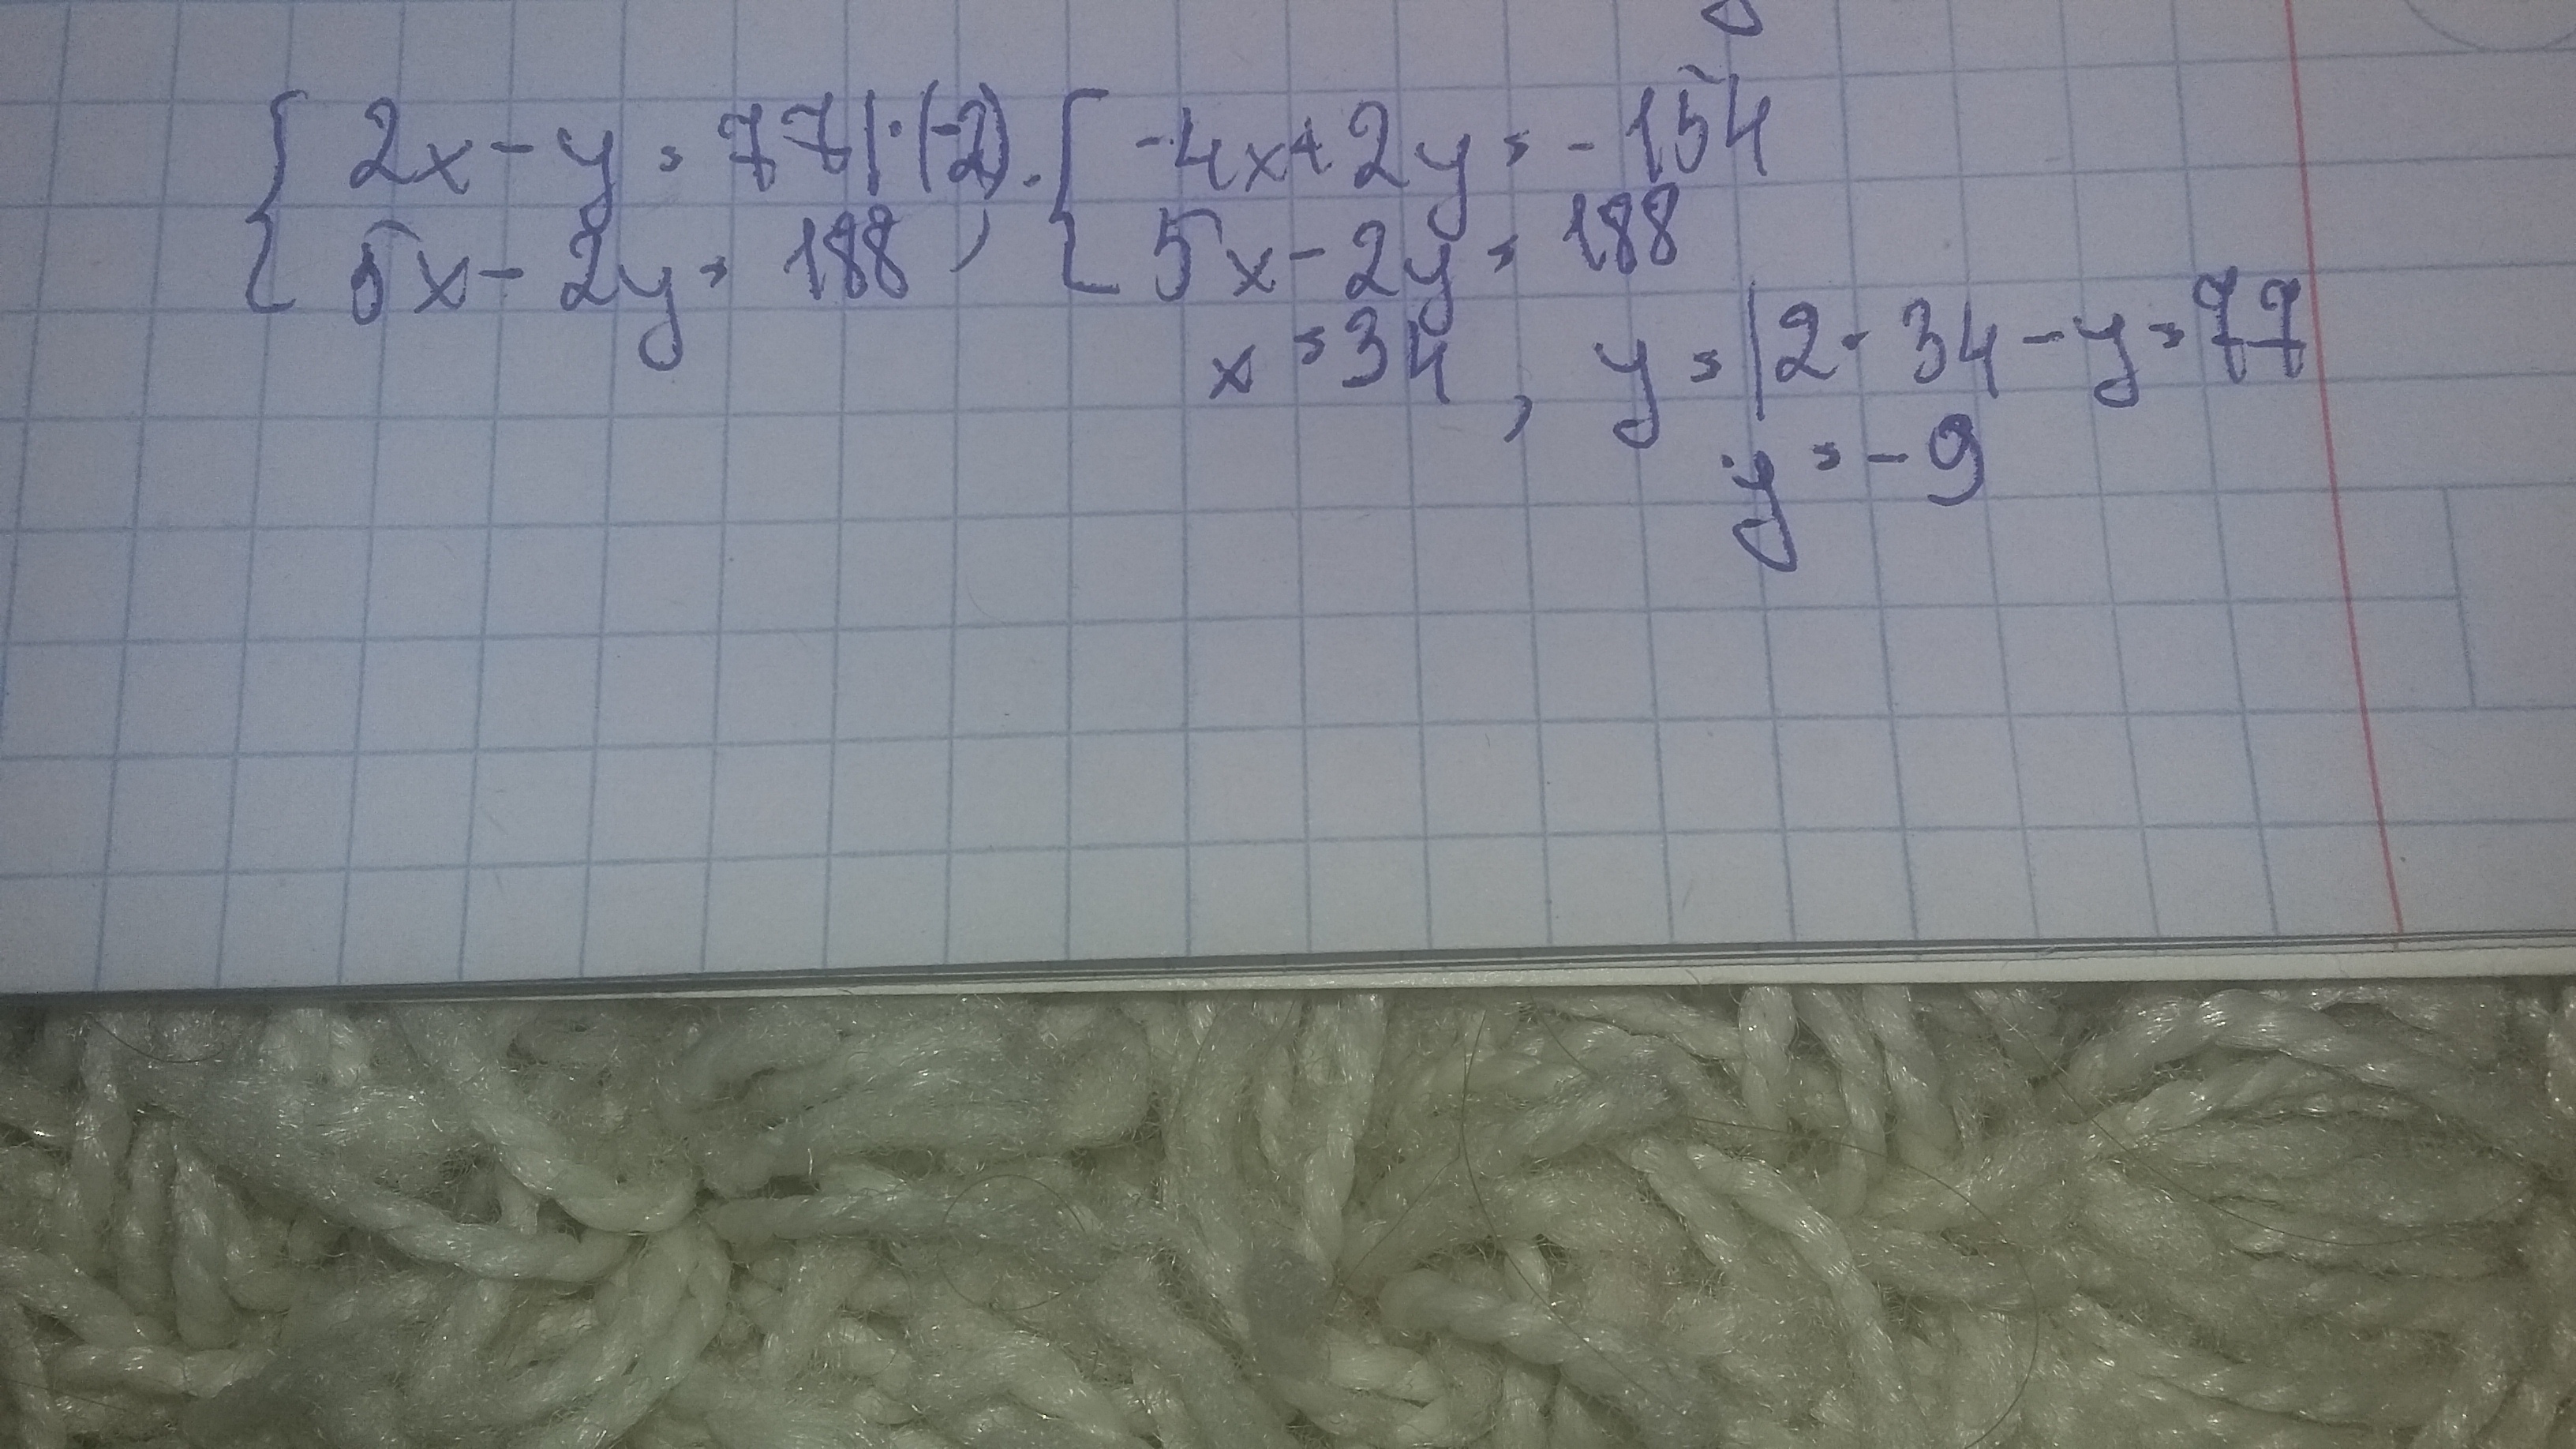 { 2x - y = 77 | · (-2) . { -4x + 2y = - 154
5x - 2y = 188 , 5x - 2y = 188
x = 34 , y = | 2 · 34 - y = 77
y = - 9